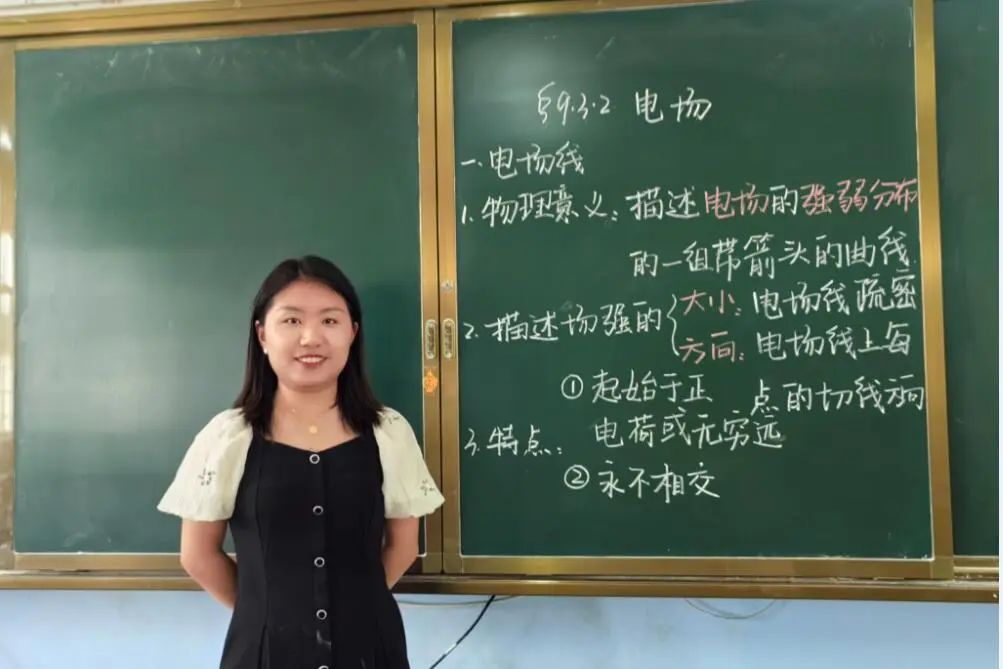 §9.3.2 电场
一、电场线
1. 物理意义：描述电场的强弱分布
的一组带箭头的曲线.
2. 描述场强的{大小：电场线疏密
方向：电场线上每
点的切线方向
3. 特点：
①起始于正
电荷或无穷远
②永不相交